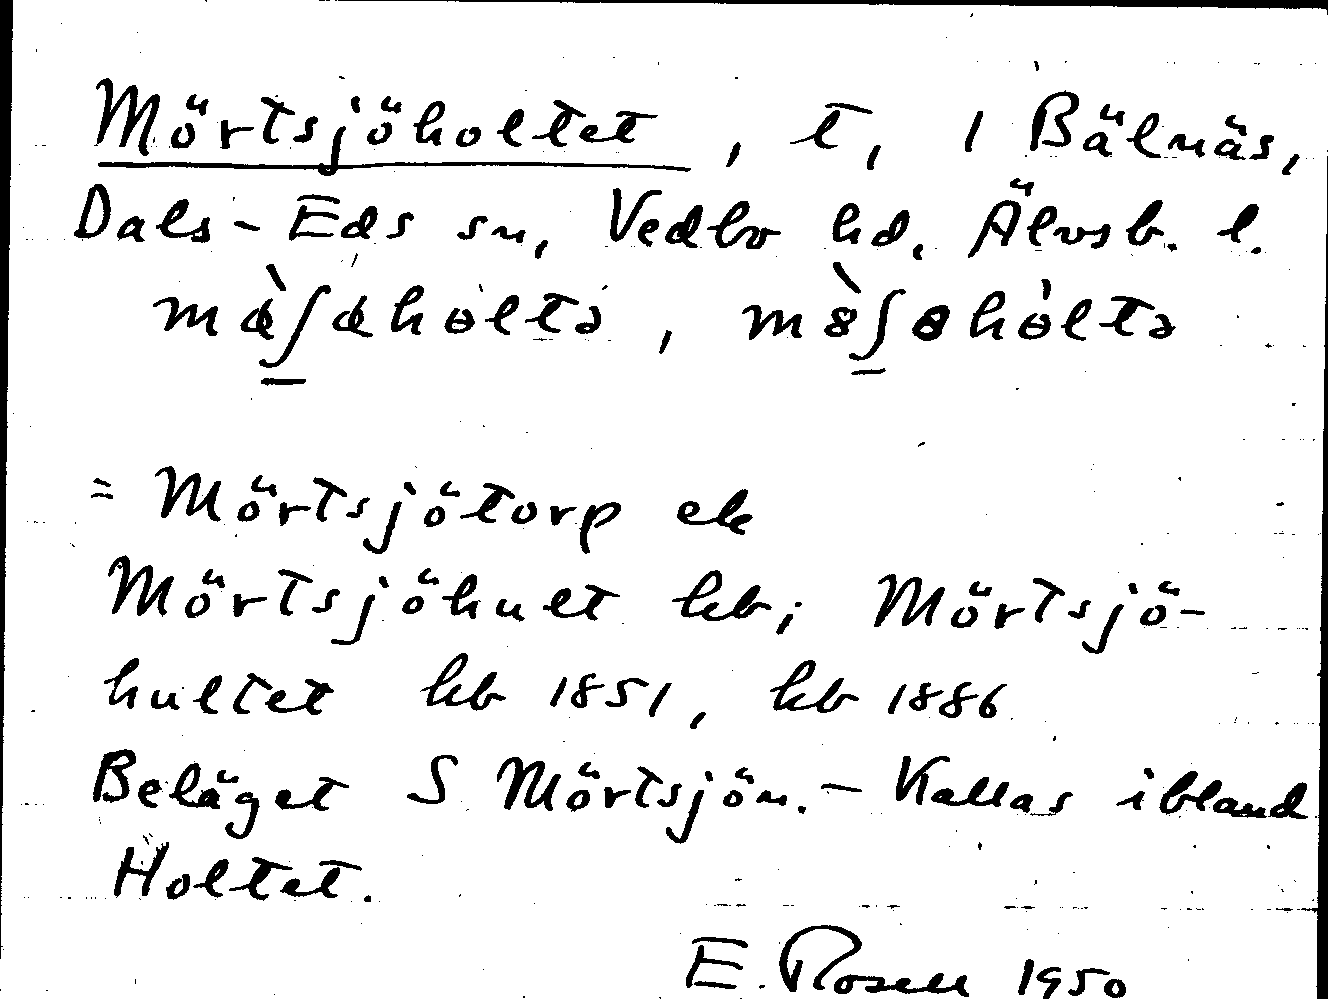 Mörtsjöholtet, t, 1 Bälnäs,
Dals-Eds sn, Vedbo hd, Älvsb. l.
= Mörtsjötorp ek
Mörtsjöhult kb; Mörtsjö-
hultet kb 1851, kb 1886
Beläget S Mörtsjön. - Kallas ibland
Holtet.
E. Rosell 1950